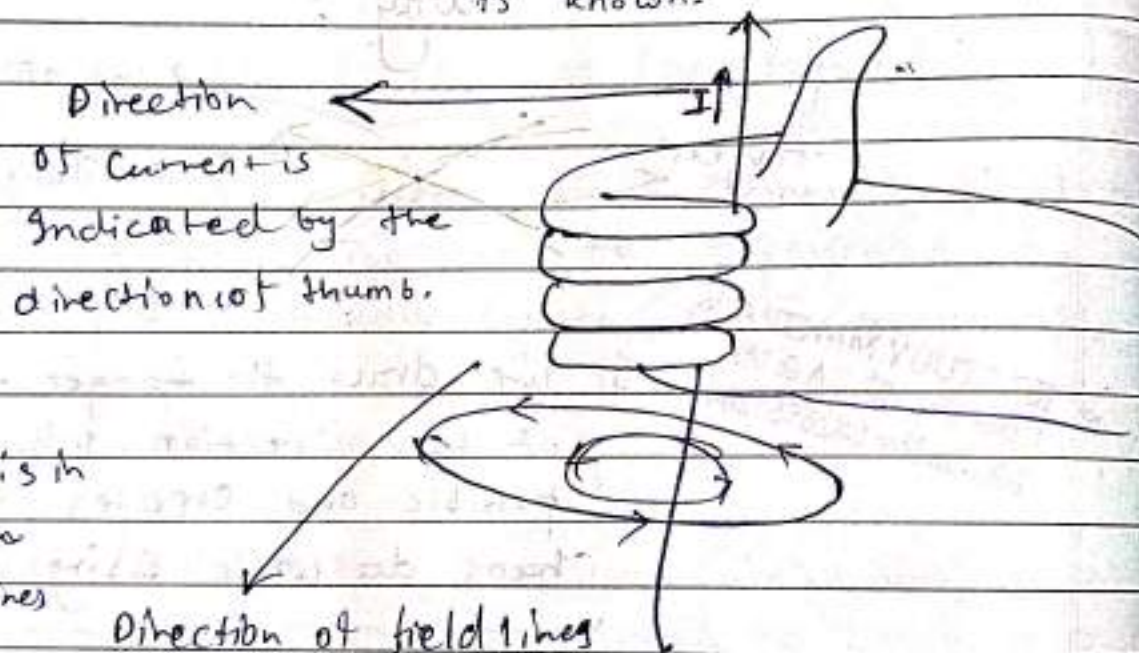 is known.
Direction
of Current is
Indicated by the
direction of thumb.
I
is in
Direction of field lines